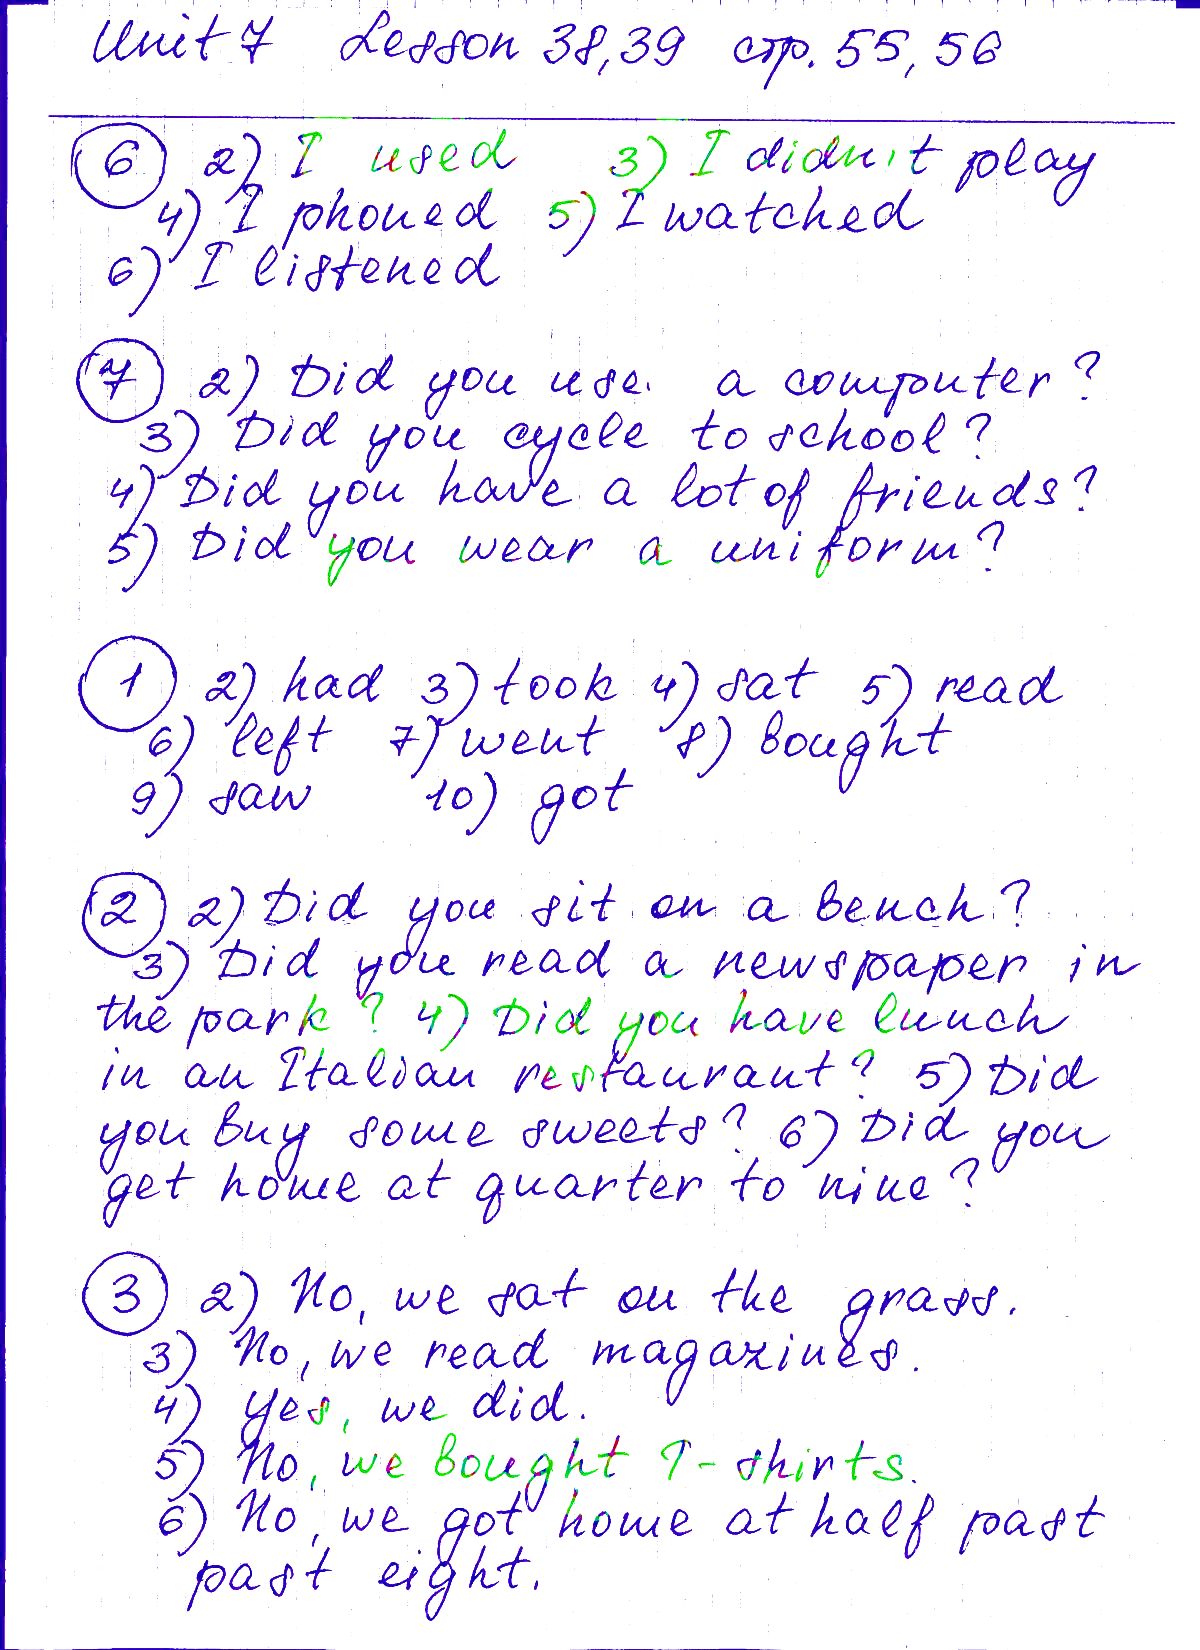 Unit 7 Lesson 38,39 стр. 55, 56
6 2) I used 3) I didn't play
4) I phoned 5) I watched
6) I listened
7 2) Did you use a computer?
3) Did you cycle to school?
4) Did you have a lot of friends?
5) Did you wear a uniform?
1 2) had 3) took 4) sat 5) read
6) left 7) went 8) bought
9) saw 10) got
2 2) Did you sit on a bench?
3) Did you read a newspaper in
the park? 4) Did you have lunch
in an Italian restaurant? 5) Did
you buy some sweets? 6) Did you
get home at quarter to nine?
3 2) No, we sat on the grass.
3) No, we read magazines.
4) Yes, we did.
5) No, we bought T-shirts.
6) No, we got home at half past
past eight.